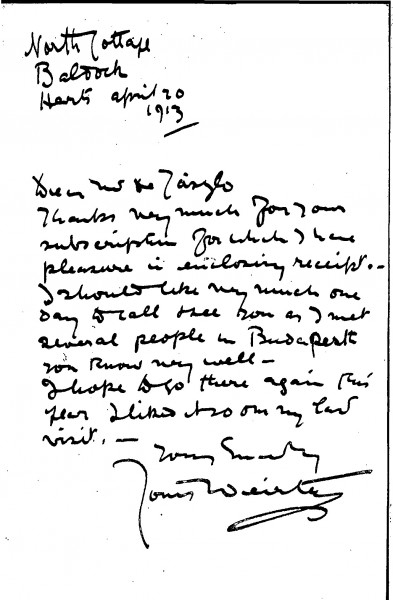 North Cottage
Baldock
Herts April 20
1913
Dear Mr de László
Thanks very much for your
subscription for which I have
pleasure in enclosing receipt. –
I should like very much one
day to call & see you as I met
several people in Budapesth
you know very well –
I hope to go there again this
year I liked it so on my last
visit. –
Yours